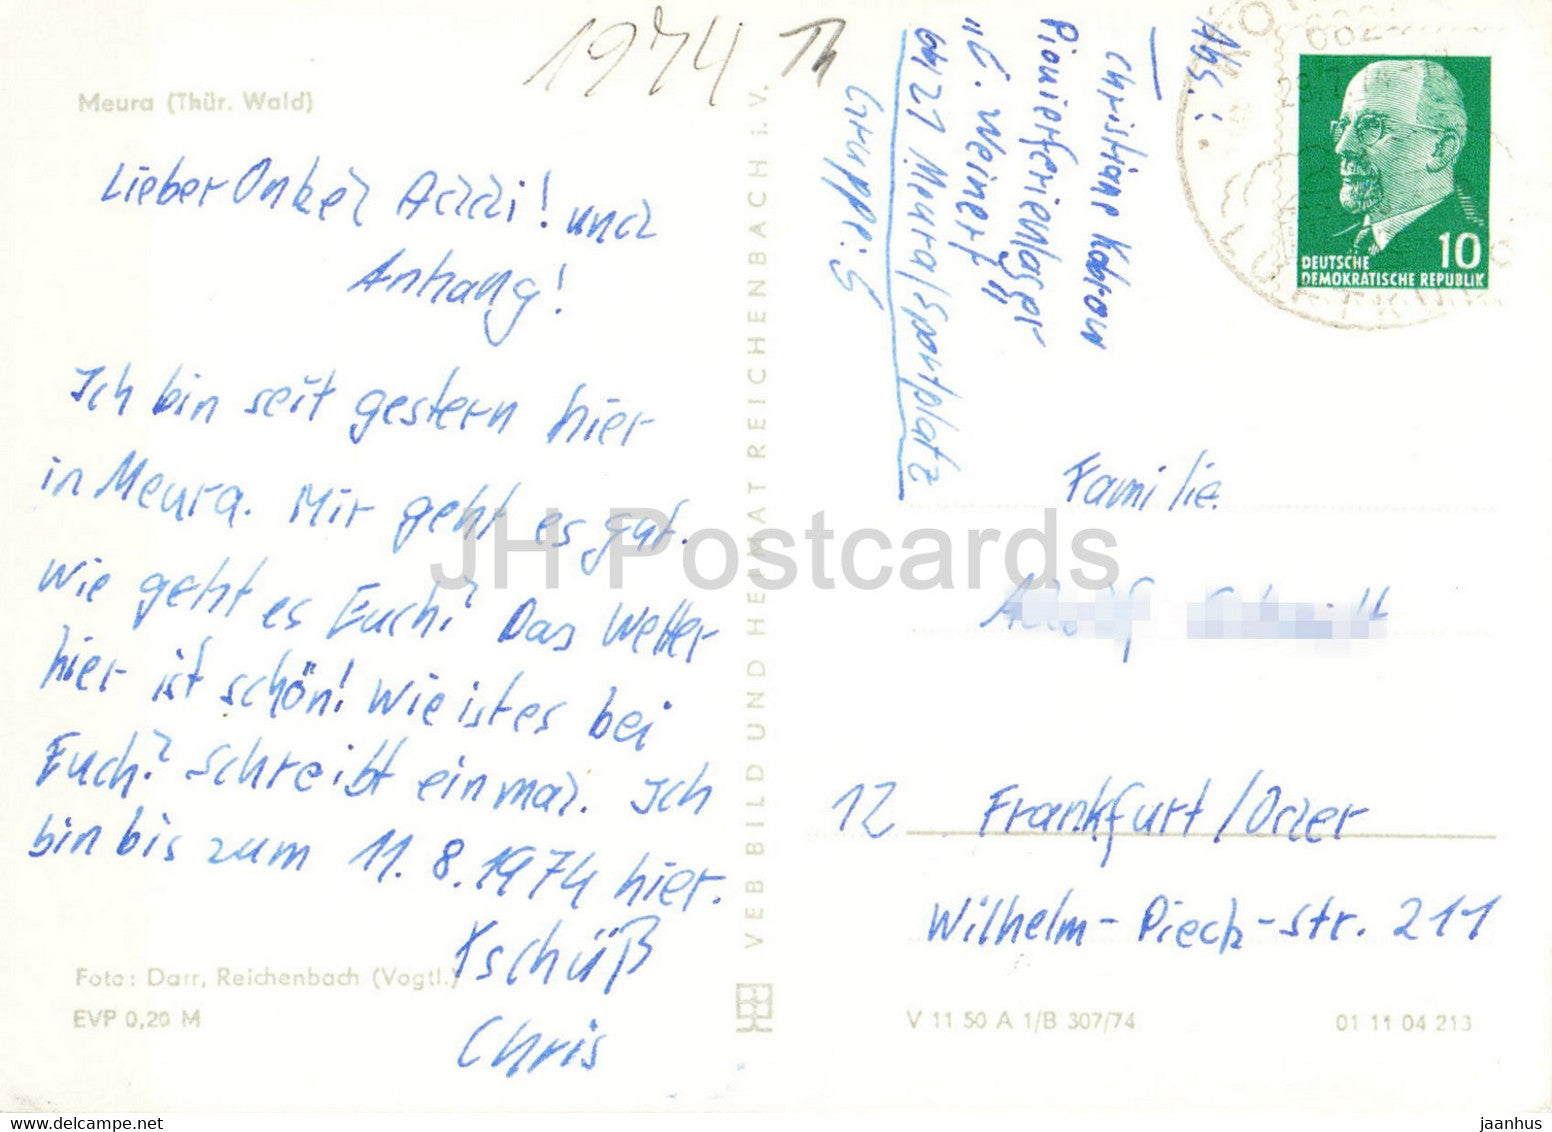 Meura (Thür. Wald)
1974 Th
Lieber Onkel Addi! und
Anhang!
Ich bin seit gestern hier
in Meura. Mir geht es gut.
Wie geht es Euch? Das Wetter
hier ist schön! Wie ist es bei
Euch? Schreibt einmal. Ich
bin bis zum 11.8.1974 hier.
Tschüß
Chris
Foto: Darr, Reichenbach (Vogtl.)
EVP 0,20 M
VEB BILD UND HEIMAT REICHENBACH i. V.
Abs.:
Christiane Kobrow
Pionierferienlager
"E. Weinert"
6421 Meura/Sportplatz
Gruppe: 5
10
DEUTSCHE
DEMOKRATISCHE REPUBLIK
Familie
12 Frankfurt/Oder
Wilhelm-Pieck-Str. 211
V 11 50 A 1/B 307/74
01 11 04 213
JH Postcards
www.delcampe.net
jaanhus